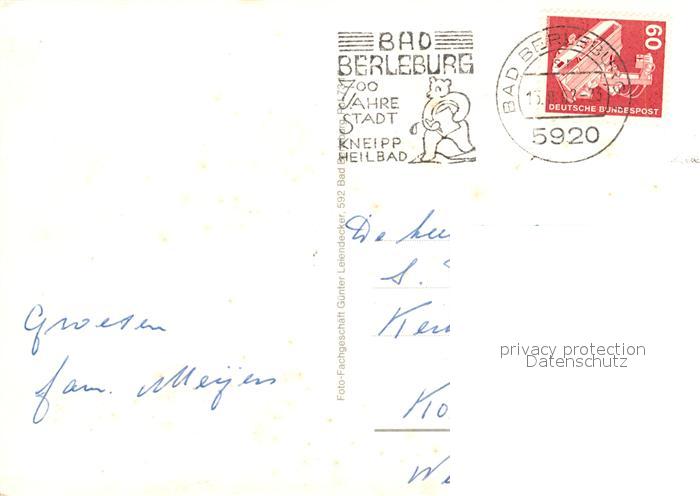 BAD
BERLEBURG
700
JAHRE
STADT
KNEIPP
HEILBAD
BAD BERLEBURG
5920
60
DEUTSCHE BUNDESPOST
Foto-Fachgeschäft Günter Leiendecker, 592 Bad
De
S.
Groeten
fam. Meijers
privacy protection
Datenschutz